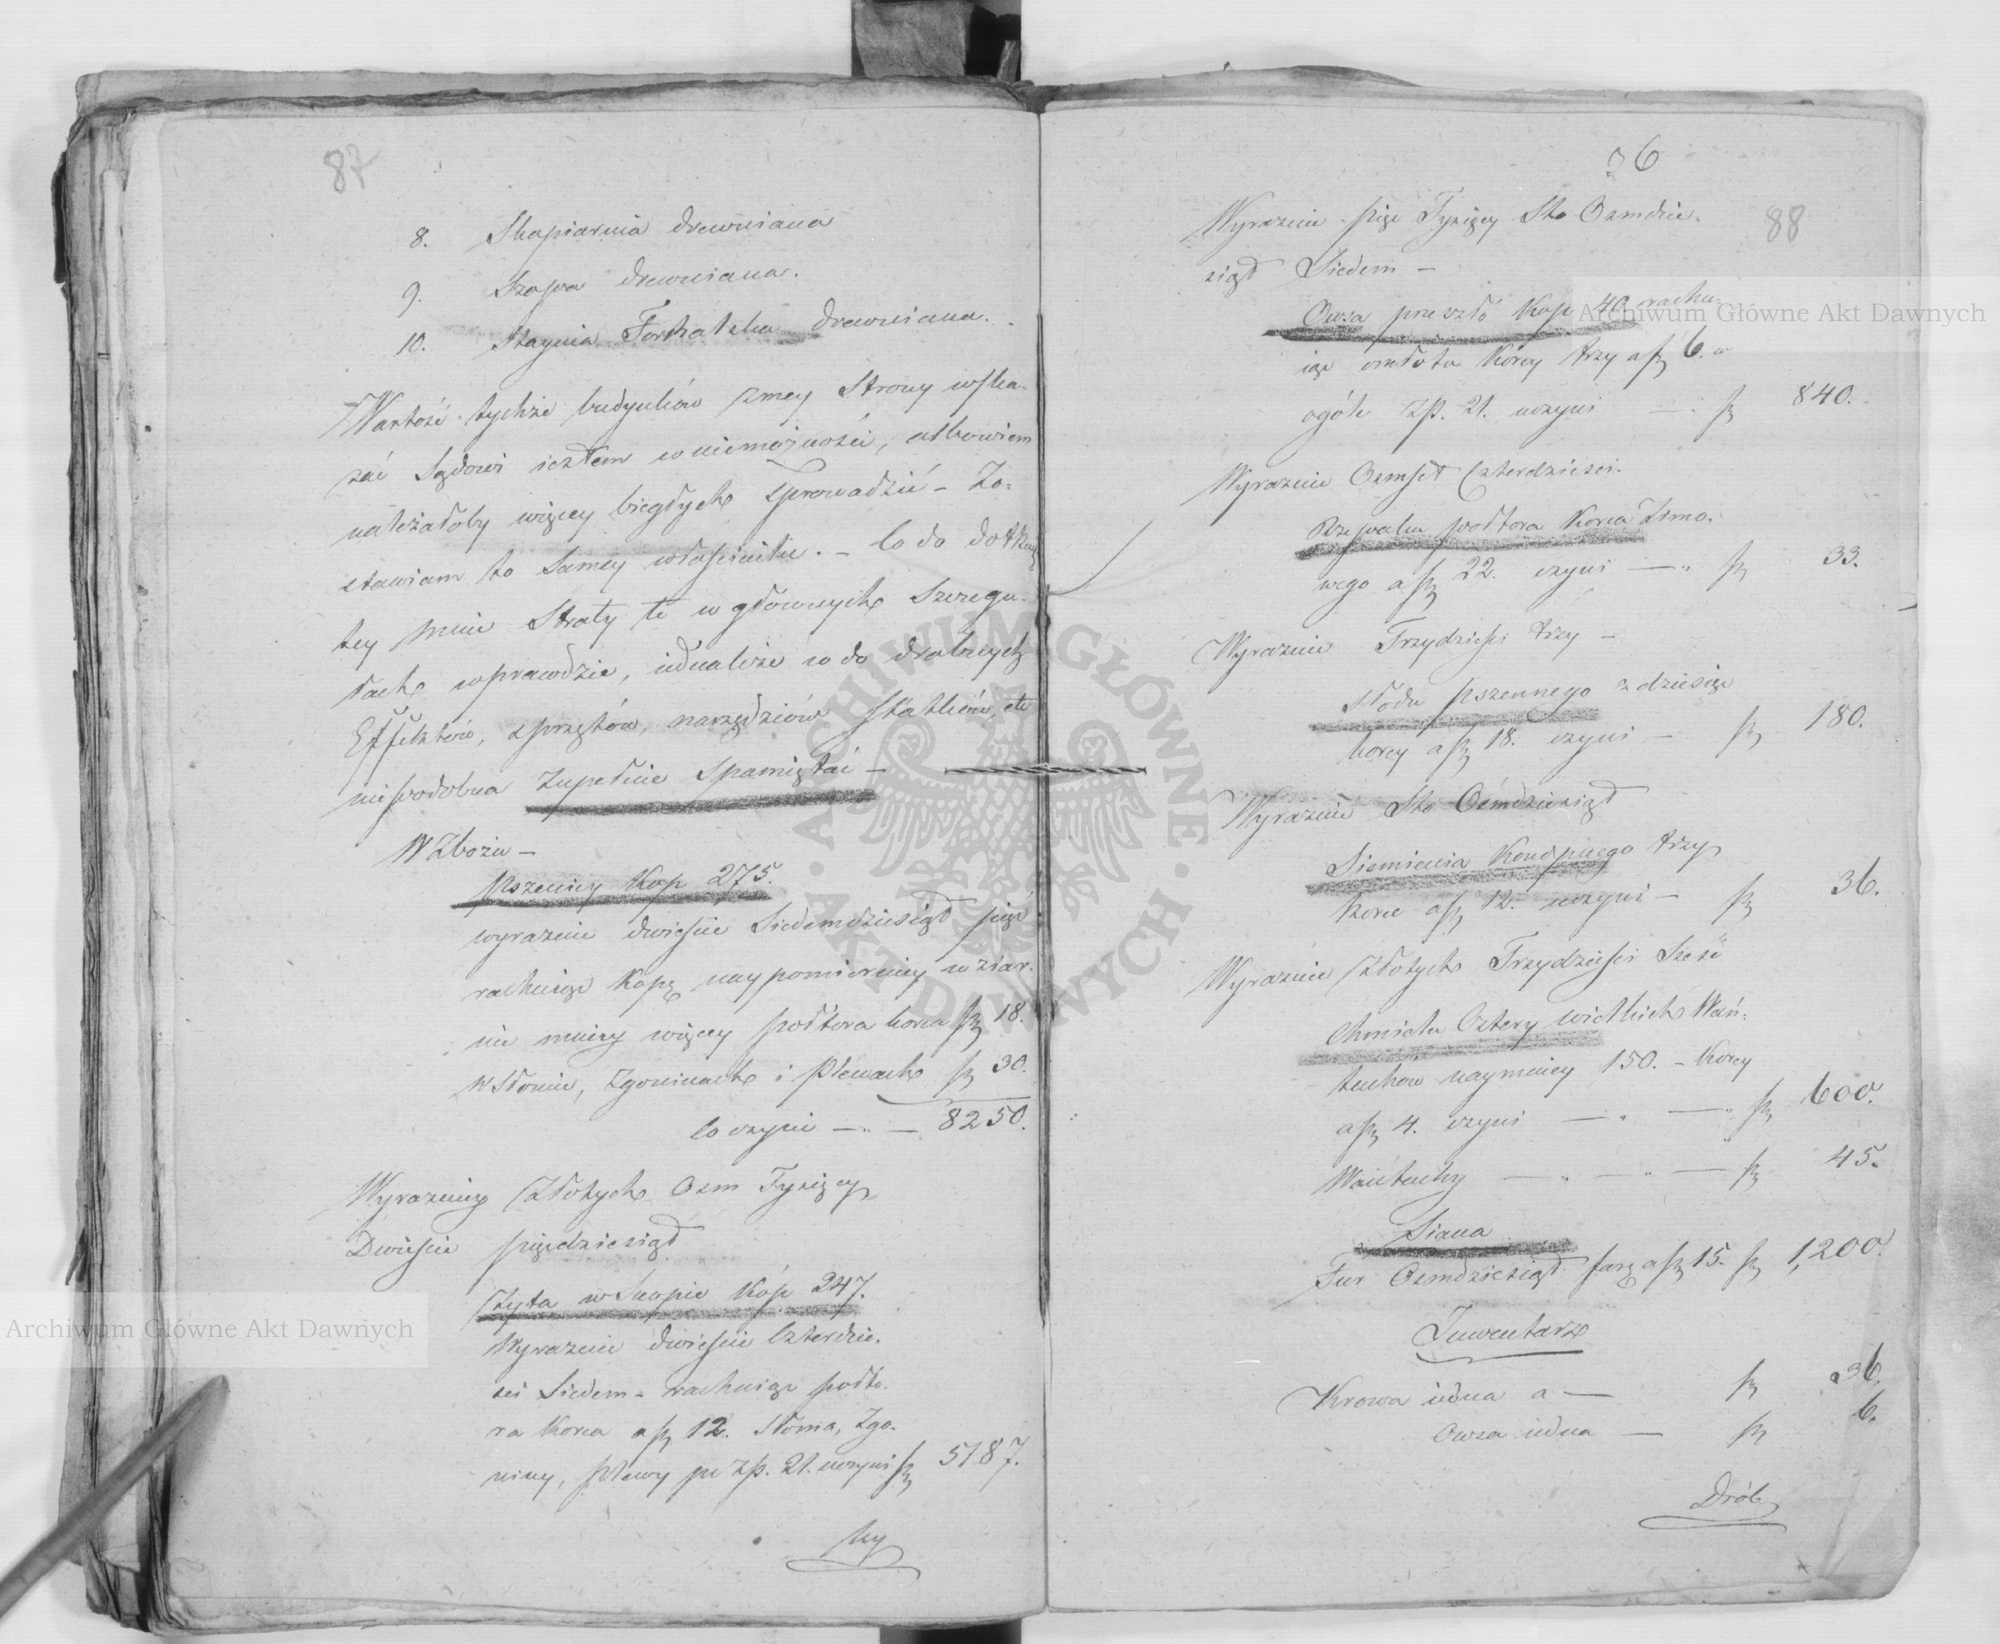 87
8. Skapiarnia drewniana
9. Szopa drewniana.
10. Staynia Forkatska drewniana.
Wartość tychże budynków zmey Strony wska-
zać Sądowi iestem w niemożności, albowiem
należałoby więcey biegłych sprowadzić – Zo-
stawiam to Samey właścicielce. – Co do dotknię
tey mnie Straty te w głównych Szczegu-
łach wprawdzie, iednakże co do drobnych
Effektów, sprzętów, narzędziów statków, etc
niepodobna zupełnie spamiętać –
W Zbożu –
Pszenicy Kop 275.
wyraźnie dwieście Siedemdziesiąt pięć
rachuiąc Kopę naypomierniey w ziar-
nie mniey więcey półtora korca fp 18.
W Słomie, Zgoninach i Plewach fp 30.
Co czyni – „ – 8250.
Wyraźniey Złotych Osm Tysięcy
Dwieście pięćdziesiąt
Żyta w Snopie Kóp 247.
Wyraźnie dwieście Czterdzie-
ści Siedem – rachuiąc półto-
ra Korca a fp 12. Słoma, Zgo-
niny, plewy po Złp. 21. uczyni fp 5187.
Wy
36
88
Wyraźnie pięć Tysięcy Sto Osmdzie-
siąt Siedem –
Owsa przeszło Kop 40 rachu-
iąc omłotu Korcy trzy a fp 6. w
ogóle Złp. 21. uczyni — „ fp 840.
Wyraźnie Osmset Czterdzieści.
Rzepaku półtora Korca Zimo-
wego a fp 22. czyni — „ fp 33.
Wyraźnie Trzydzieści trzy –
Słodu pszennego z dziesięć
korcy a fp 18. czyni – fp 180.
Wyraźnie Sto Ośmdziesiąt
Siemienia Konopnego trzy
korce a fp 12. uczyni – fp 36.
Wyraźnie Złotych Trzydzieści Sześć
Chmielu Cztery wielkich Wań-
tuchów naymniey 150. – Korcy
a fp 4. czyni — „ — „ fp 600.
Wańtuchy — „ — „ — fp 45.
Siana
Fur Osmdziesiąt furę a fp 15. fp 1,200.
Inwentarz
Krowa iedna a — fp 36.
Owca iedna — fp 6.
Drób
Archiwum Główne Akt Dawnych
Archiwum Główne Akt Dawnych
ARCHIWUM GŁÓWNE · AKT DAWNYCH ·